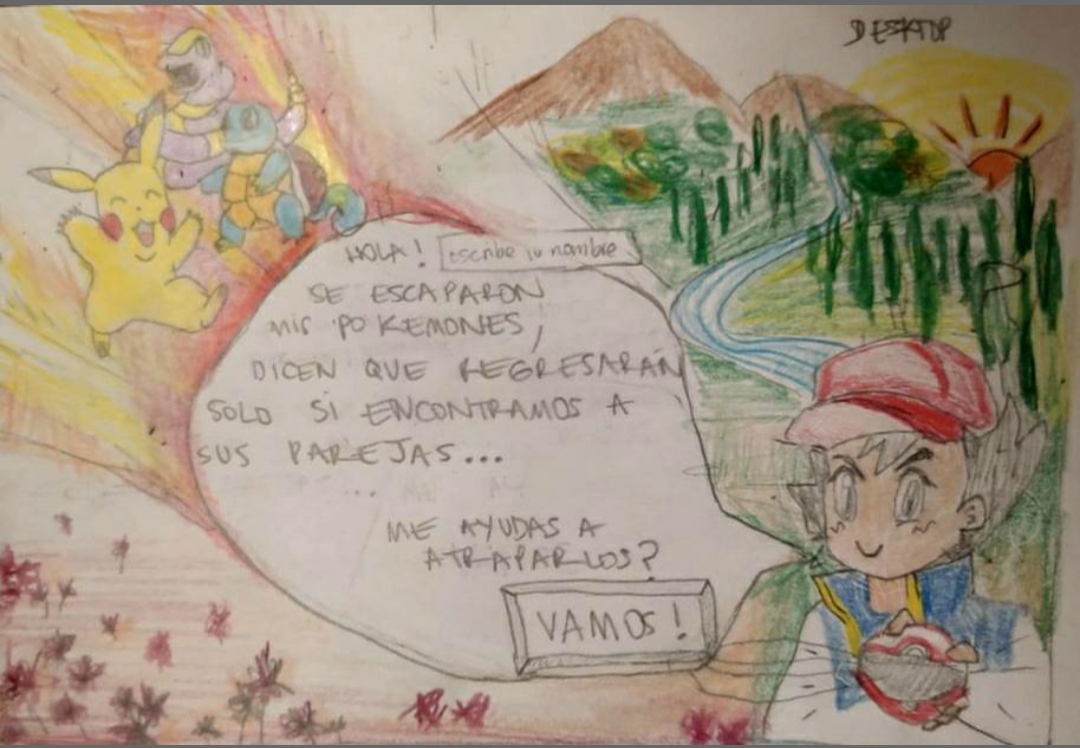 DESKTOP
HOLA! escribe tu nombre
SE ESCAPARON
mis POKEMONES,
DICEN QUE REGRESARÁN
SOLO SI ENCONTRAMOS A
SUS PAREJAS...
...
ME AYUDAS A
ATRAPARLOS?
VAMOS!